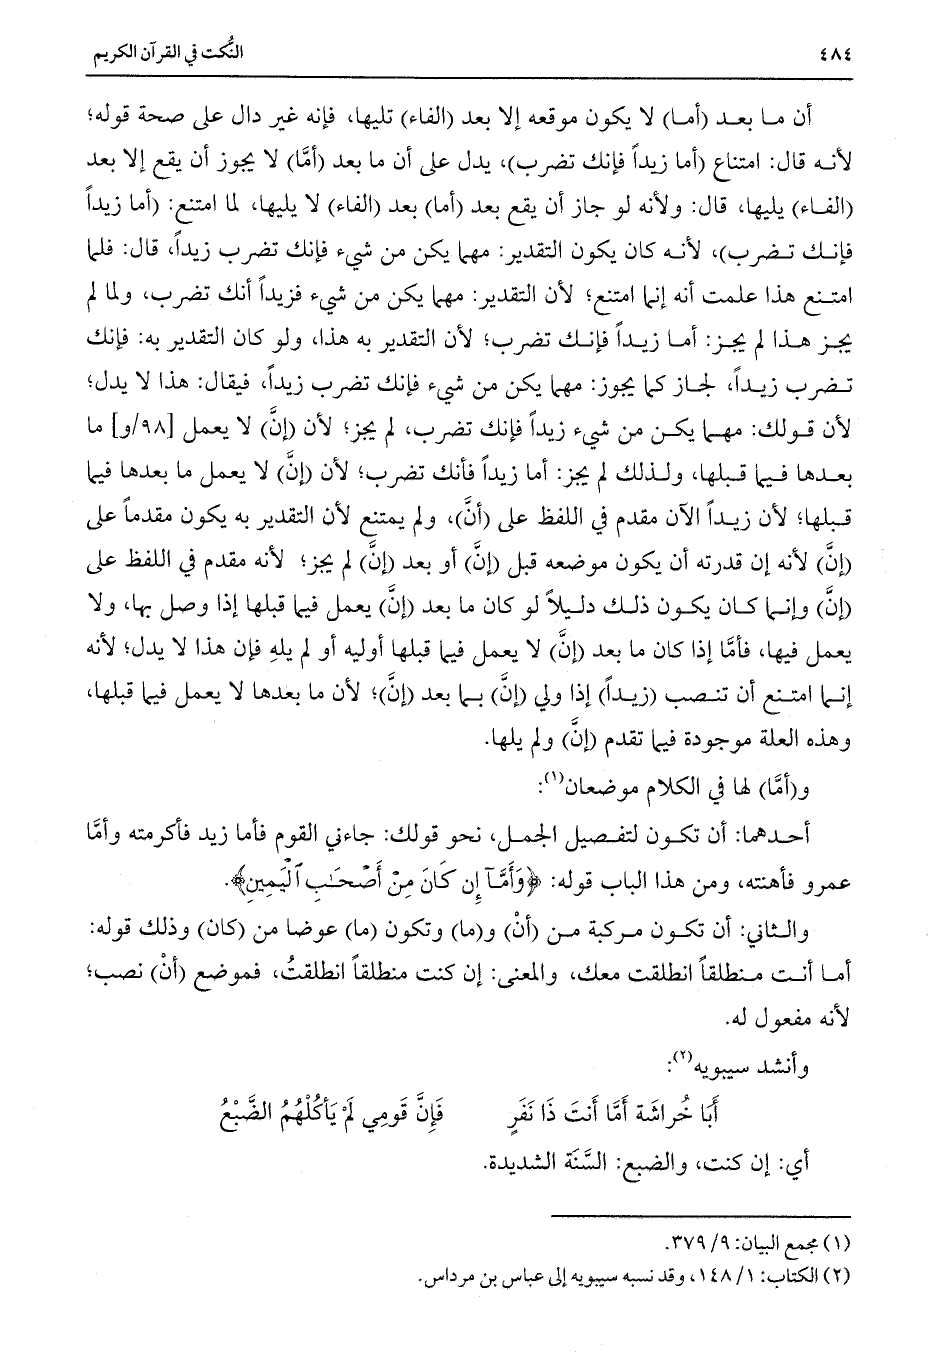 ٤٨٤ النُّكت في القرآن الكريم
أن ما بعد (أما) لا يكون موقعه إلا بعد (الفاء) تليها، فإنه غير دال على صحة قوله؛
لأنه قال: امتناع (أما زيداً فإنك تضرب)، يدل على أن ما بعد (أمَّا) لا يجوز أن يقع إلا بعد
(الفاء) يليها، قال: ولأنه لو جاز أن يقع بعد (أما) بعد (الفاء) لا يليها، لما امتنع: (أما زيداً
فإنك تضرب)، لأنه كان يكون التقدير: مهما يكن من شيء فإنك تضرب زيداً، قال: فلما
امتنع هذا علمت أنه إنما امتنع؛ لأن التقدير: مهما يكن من شيء فزيداً أنك تضرب، ولما لم
يجز هذا لم يجز: أما زيداً فإنك تضرب؛ لأن التقدير به هذا، ولو كان التقدير به: فإنك
تضرب زيداً، لجاز كما يجوز: مهما يكن من شيء فإنك تضرب زيداً، فيقال: هذا لا يدل؛
لأن قولك: مهما يكن من شيء زيداً فإنك تضرب، لم يجز؛ لأن (إنَّ) لا يعمل [٩٨/و] ما
بعدها فيما قبلها، ولذلك لم يجز: أما زيداً فأنك تضرب؛ لأن (إنَّ) لا يعمل ما بعدها فيما
قبلها؛ لأن زيداً الآن مقدم في اللفظ على (أنَّ)، ولم يمتنع لأن التقدير به يكون مقدماً على
(إنَّ) لأنه إن قدرته أن يكون موضعه قبل (إنَّ) أو بعد (إنَّ) لم يجز؛ لأنه مقدم في اللفظ على
(إنَّ) وإنما كان يكون ذلك دليلاً لو كان ما بعد (إنَّ) يعمل فيما قبلها إذا وصل بها، ولا
يعمل فيها، فأمَّا إذا كان ما بعد (إنَّ) لا يعمل فيما قبلها أوليه أو لم يلهِ فإن هذا لا يدل؛ لأنه
إنما امتنع أن تنصب (زيداً) إذا ولي (إنَّ) بما بعد (إنَّ)؛ لأن ما بعدها لا يعمل فيما قبلها،
وهذه العلة موجودة فيما تقدم (إنَّ) ولم يلها.
و(أمَّا) لها في الكلام موضعان(١):
أحدهما: أن تكون لتفصيل الجمل، نحو قولك: جاءني القوم فأما زيد فأكرمته وأمَّا
عمرو فأهنته، ومن هذا الباب قوله: ﴿وَأَمَّآ إِن كَانَ مِنْ أَصْحَٰبِ ٱلْيَمِينِ﴾.
والثاني: أن تكون مركبة من (أنْ) و(ما) وتكون (ما) عوضا من (كان) وذلك قوله:
أما أنت منطلقاً انطلقت معك، والمعنى: إن كنت منطلقاً انطلقتُ، فموضع (أنْ) نصب؛
لأنه مفعول له.
وأنشد سيبويه(٢):
أَبَا خُراشَة أمَّا أَنتَ ذَا نَفَرٍ فَإِنَّ قَومِي لَمْ يَأكُلْهُمُ الضَّبْعُ
أي: إن كنت، والضبع: السَّنَة الشديدة.
(١) مجمع البيان: ٩/ ٣٧٩.
(٢) الكتاب: ١/ ١٤٨، وقد نسبه سيبويه إلى عباس بن مرداس.